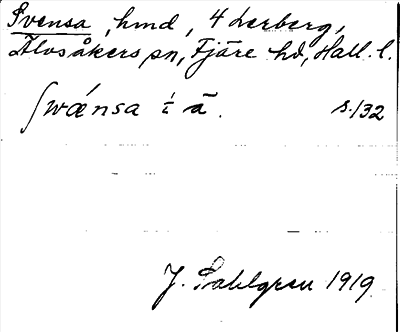 Svensa, hmd, 4 Lerberg,
Älvsåkers sn, Fjäre hd, Hall. l.
ʃwǽnsa ½ ā. s. 132
J. Sahlgren 1919